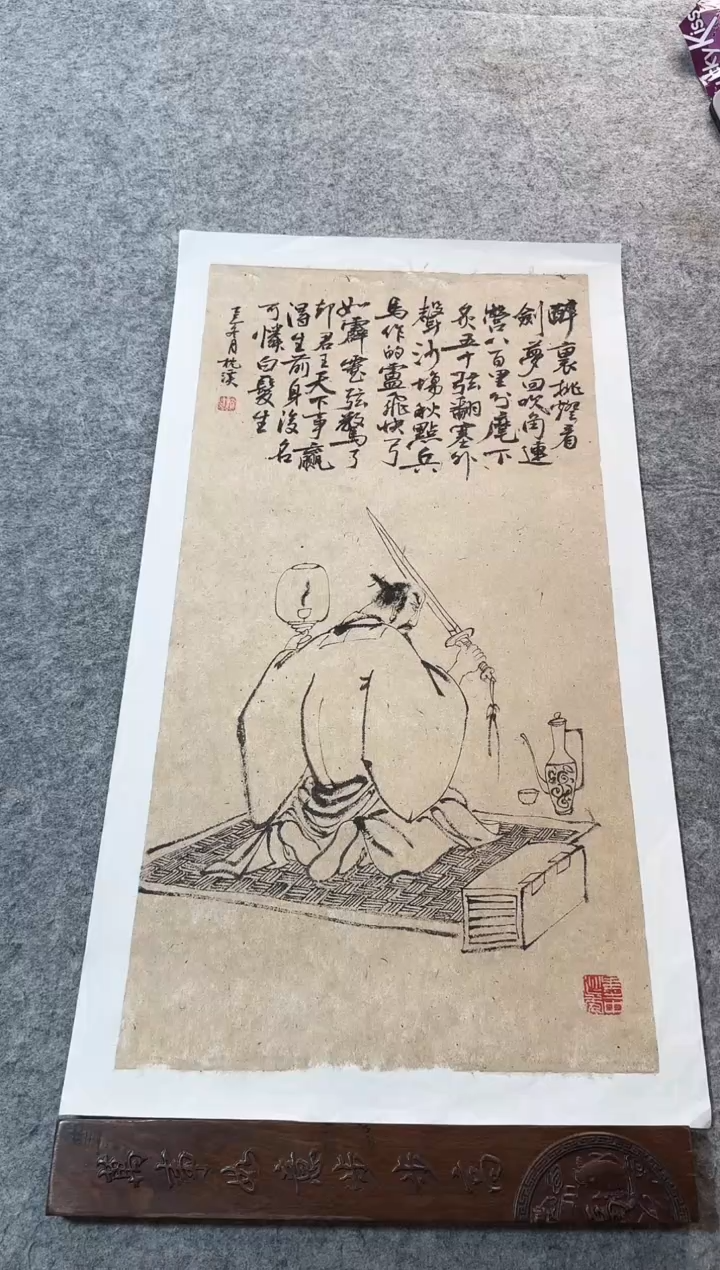 醉裏挑燈看
劍夢回吹角連
營八百里分麾下
炙五十弦翻塞外
聲沙場秋點兵
馬作的盧飛快弓
如霹靂弦驚了
却君王天下事贏
淂生前身後名
可憐白髮生